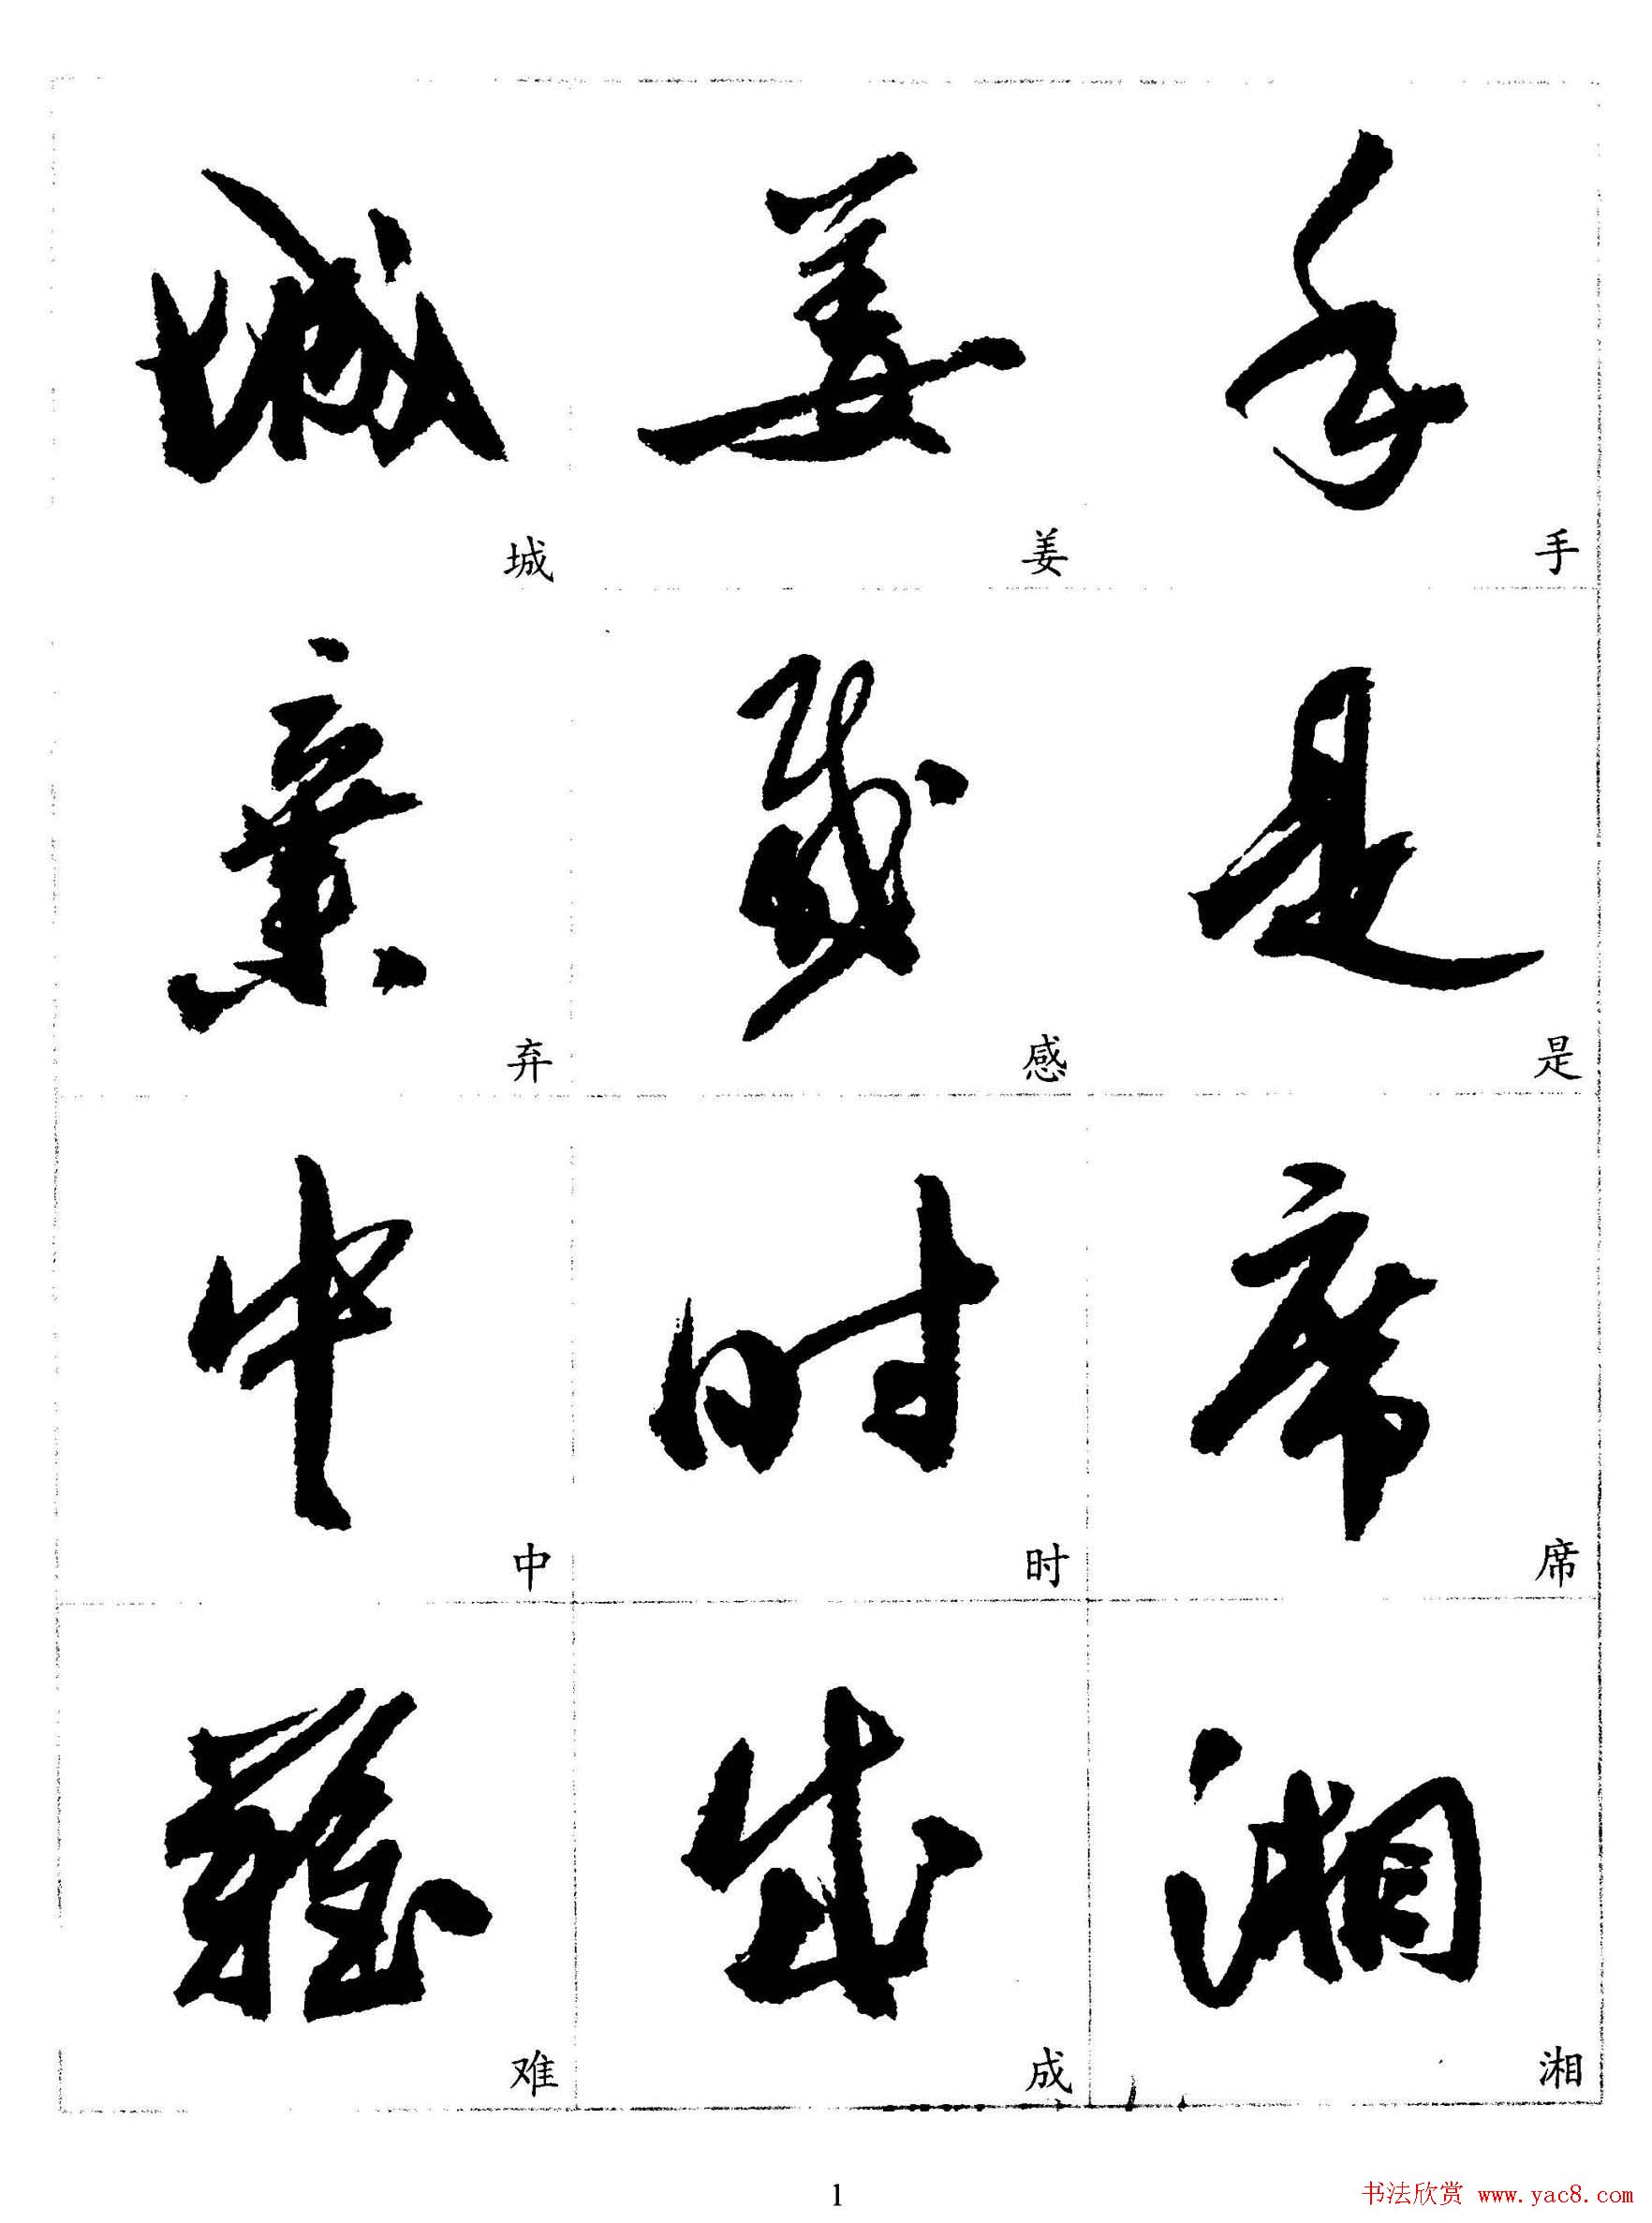 城 姜 手
弃 感 是
中 时 席
难 成 湘
1
书法欣赏 www.yac8.com